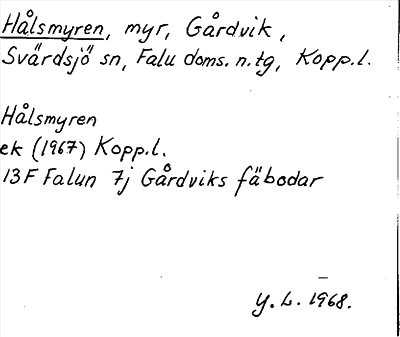 Hålsmyren, myr, Gårdvik,
Svärdsjö sn, Falu doms. n. tg, Kopp. l.
Hålsmyren
ek (1967) Kopp. l.
13F Falun 7j Gårdviks fäbodar
Y. L. 1968.